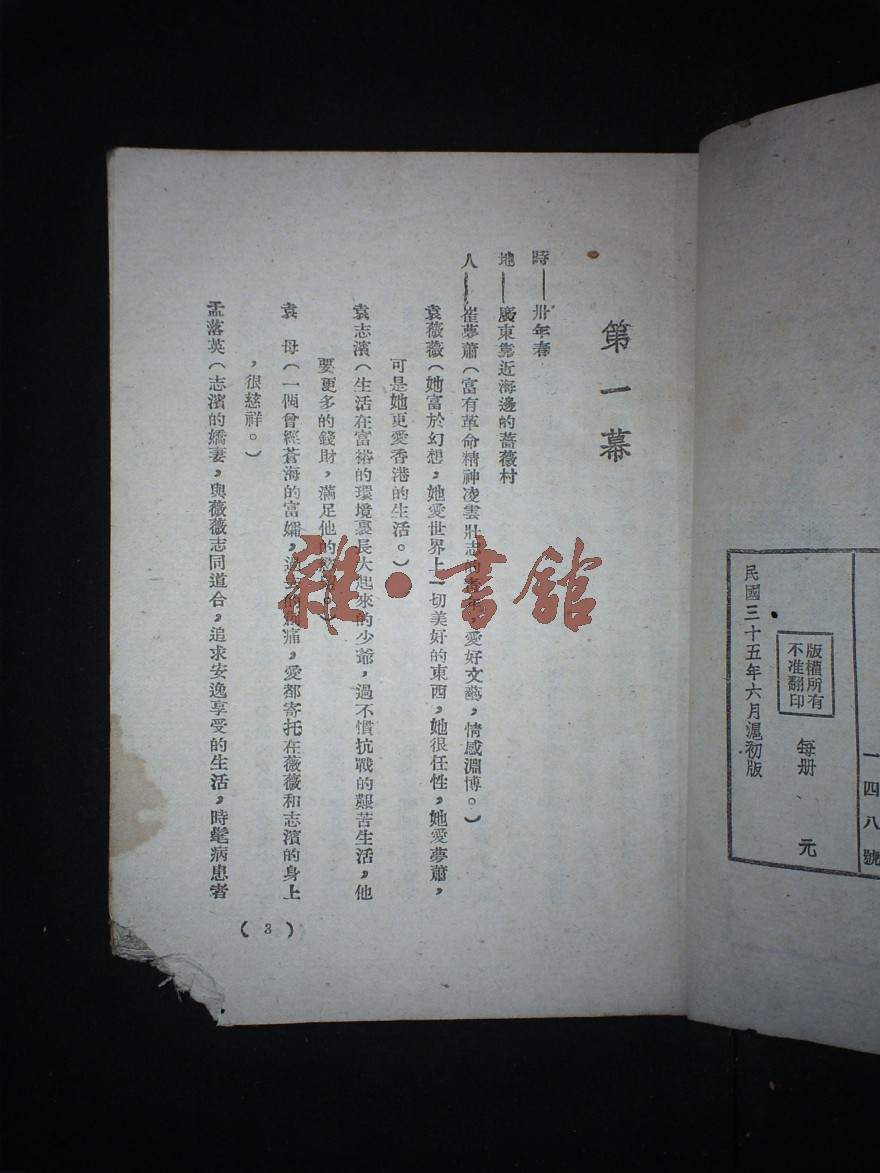 第一幕
時——卅年春
地——廣東靠近海邊的薔薇村
人——崔夢蕭（富有革命精神凌雲壯志的青年，愛好文藝，情感淵博。）
袁薇薇（她富於幻想，她愛世界上一切美好的東西，她很任性，她愛夢蕭，
可是她更愛香港的生活。）
袁志濱（生活在富裕的環境裏長大起來的少爺，過不慣抗戰的艱苦生活，他
要更多的錢財，滿足他的
袁　母（一個曾經蒼海的富孀，過去的創痛，愛都寄托在薇薇和志濱的身上
，很慈祥。）
孟落英（志濱的嬌妻，與薇薇志同道合，追求安逸享受的生活，時髦病患者
（3）
一四八號
每册　元
版權所有
不准翻印
民國三十五年六月滬初版
雜·書館